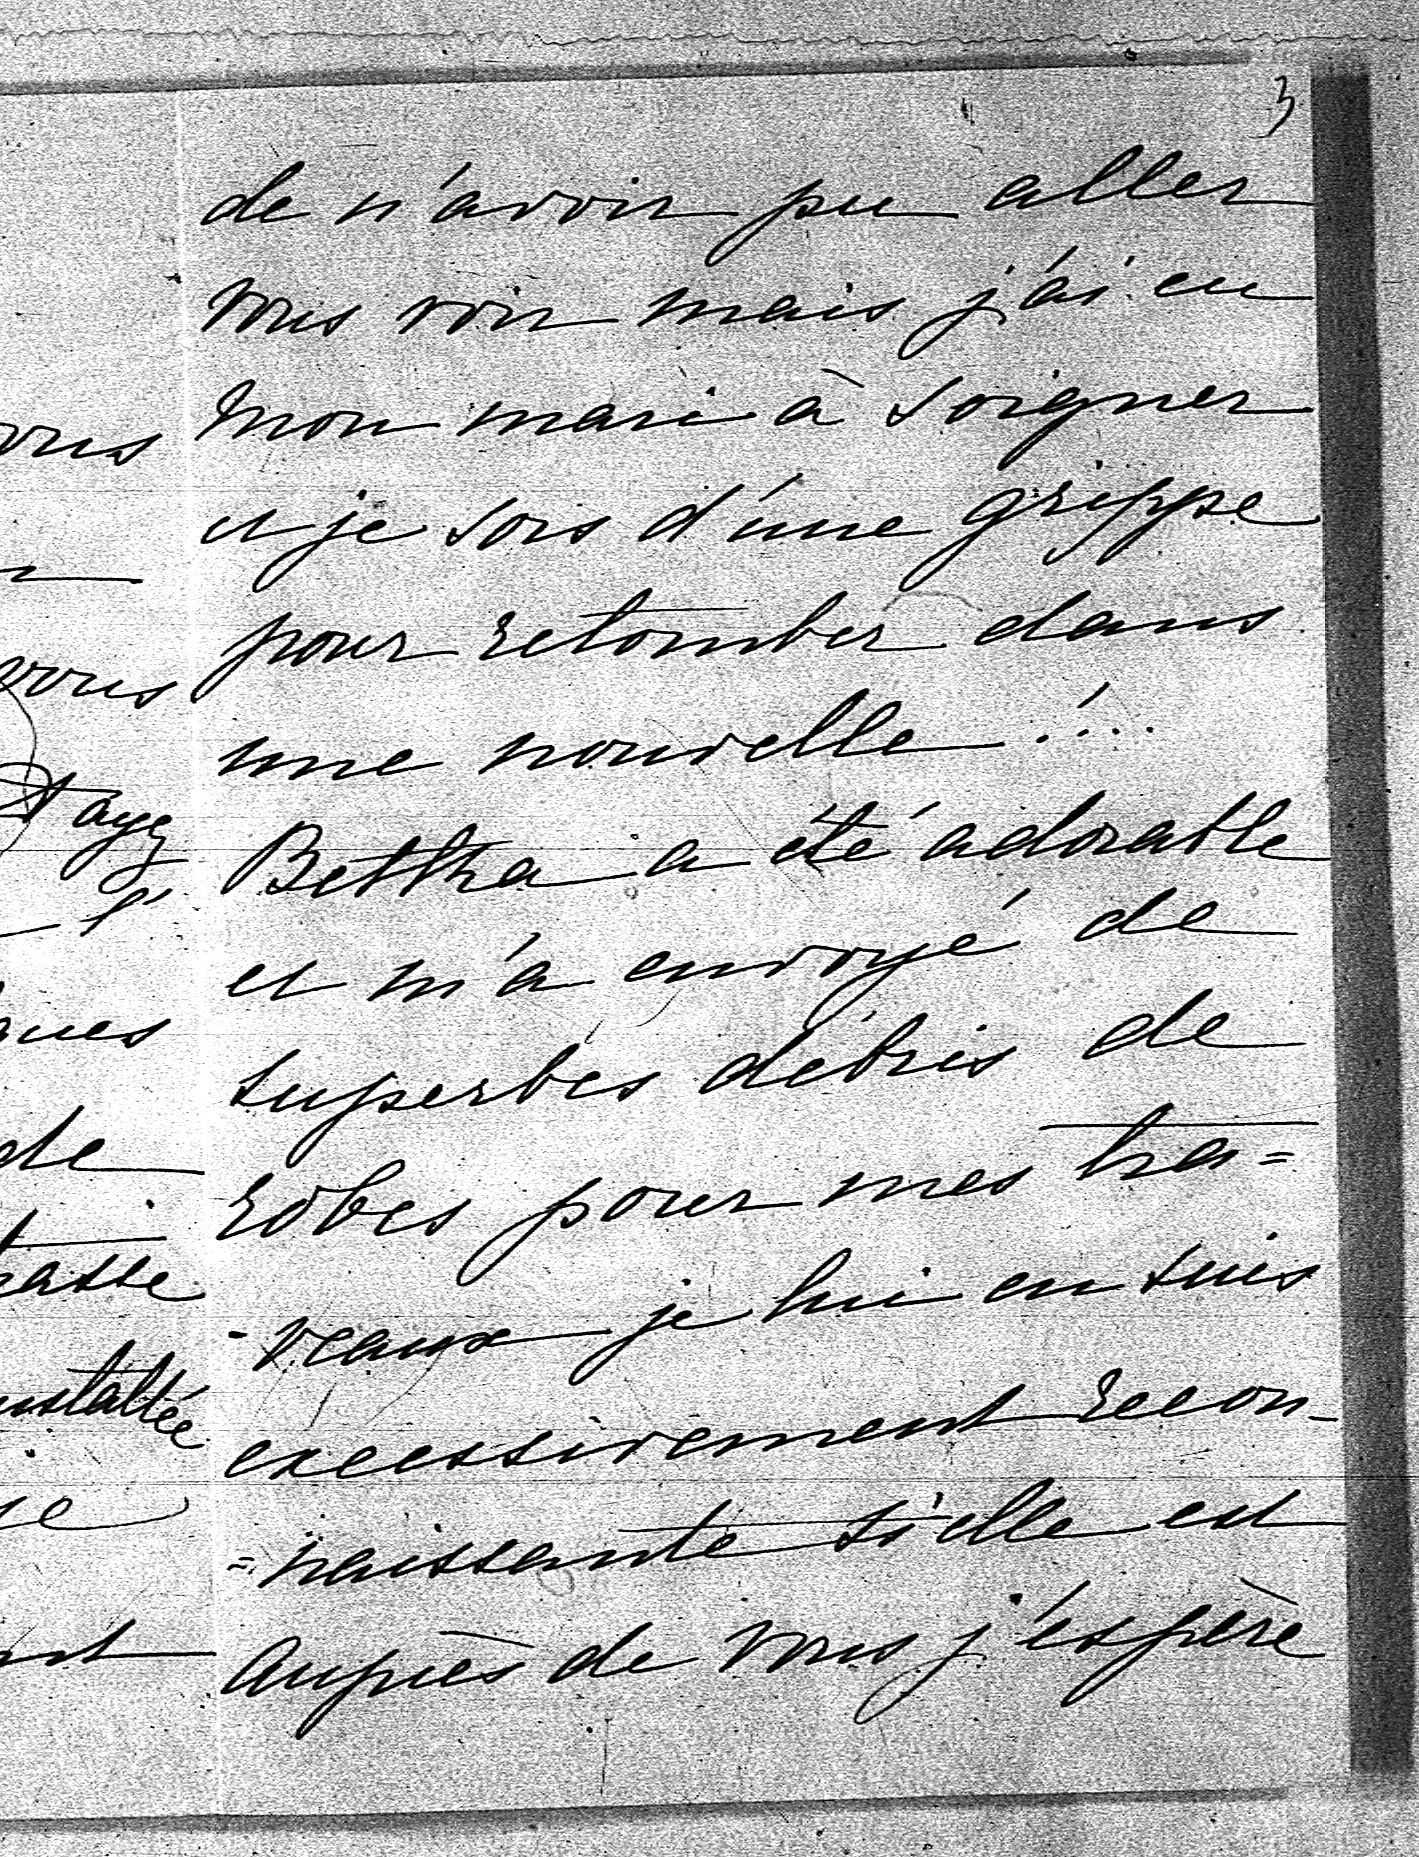 3
de n'avoir pu aller
vous voir mais j'ai eu
mon mari à soigner
et je sors d'une grippe
pour retomber dans
une nouvelle !...
Bettha a été adorable
et m'a envoyé de
superbes débris de
robes pour mes tra=
-veaux je lui en suis
excessivement recon-
=naissante si elle est
auprès de vous j'espère
vous
vous
l'
ques
de
installée